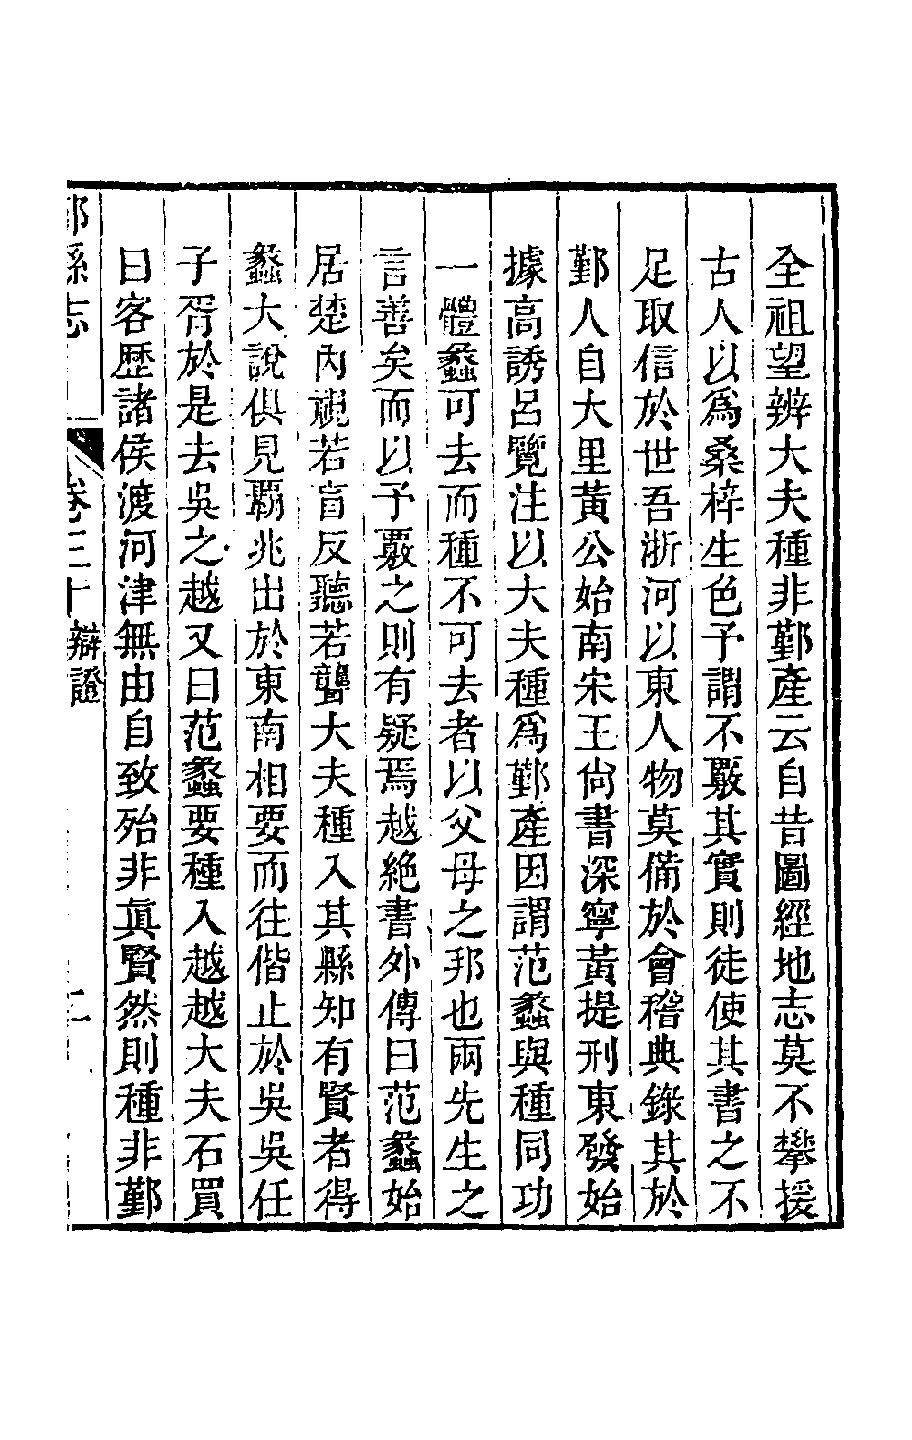 全祖望辨大夫種非鄞產云自昔圖經地志莫不攀援
古人以爲桑梓生色予謂不覈其實則徒使其書之不
足取信於世吾浙河以東人物莫備於會稽典錄其於
鄞人自大里黃公始南宋王尙書深寧黃提刑東發始
據高誘呂覽注以大夫種爲鄞產因謂范蠡與種同功
一體蠡可去而種不可去者以父母之邦也兩先生之
言善矣而以予覈之則有疑焉越絕書外傳曰范蠡始
居楚內視若盲反聽若聾大夫種入其縣知有賢者得
蠡大說俱見霸兆出於東南相要而往偕止於吳吳任
子胥於是去吳之越又曰范蠡要種入越越大夫石買
曰客歷諸侯渡河津無由自致殆非眞賢然則種非鄞
縣志
卷三十 辯證